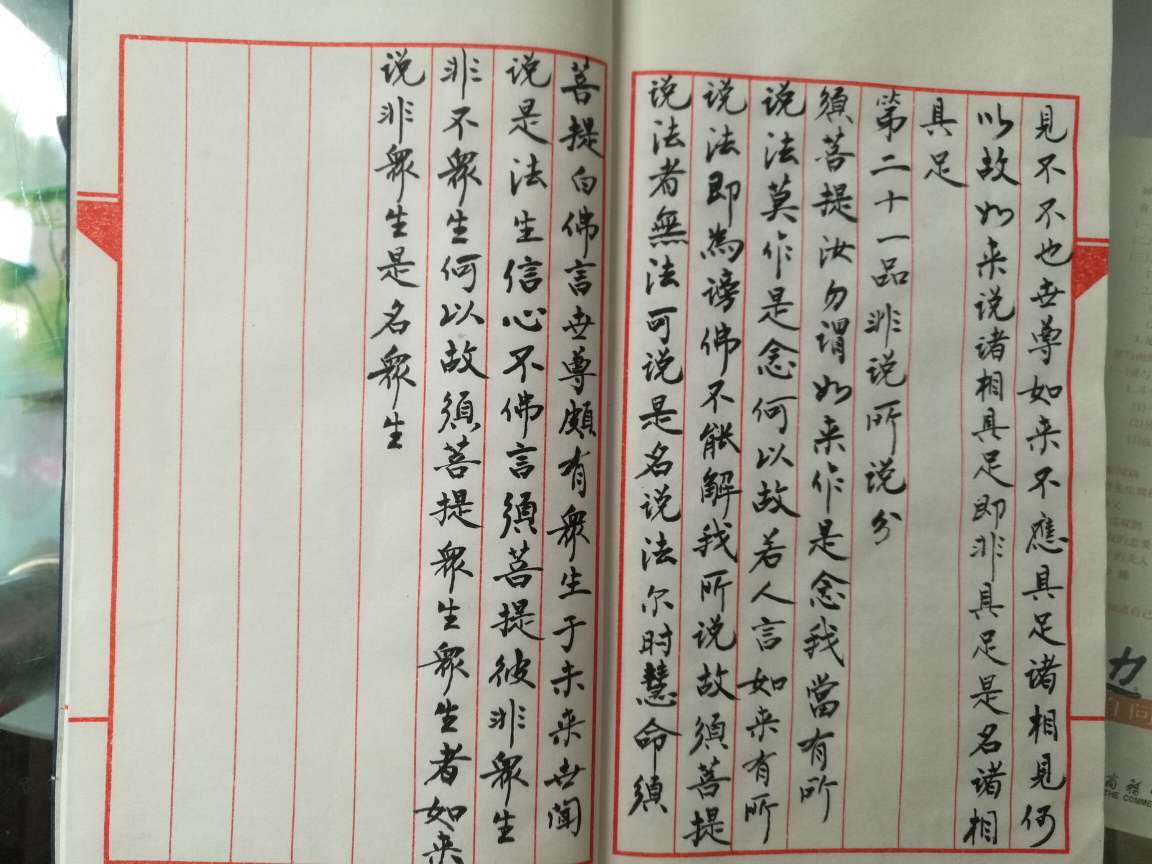 見不不也世尊如来不應具足诸相見何
以故如来说诸相具足即非具足是名诸相
具足
第二十一品非说所说分
須菩提汝勿谓如来作是念我當有所
说法莫作是念何以故若人言如来有所
说法即為谤佛不能解我所说故須菩提
说法者無法可说是名说法尔时慧命須
菩提白佛言世尊頗有衆生于未来世闻
说是法生信心不佛言須菩提彼非衆生
非不衆生何以故須菩提衆生衆生者如来
说非衆生是名衆生
力
自问
商務
THE COMME